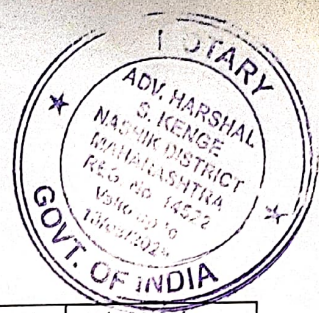 NOTARY
ADV. HARSHAL
S. KENGE
NASHIK DISTRICT
MAHARASHTRA
REG. No. 14572
GOVT. OF INDIA